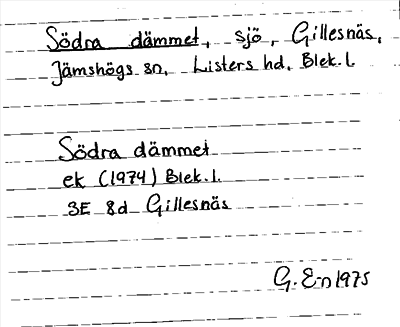 Södra dämmet, sjö, Gillesnäs,
Jämshögs sn, Listers hd, Blek. l.
Södra dämmet
ek (1974) Blek. l.
3E 8d Gillesnäs
G. E-n 1975